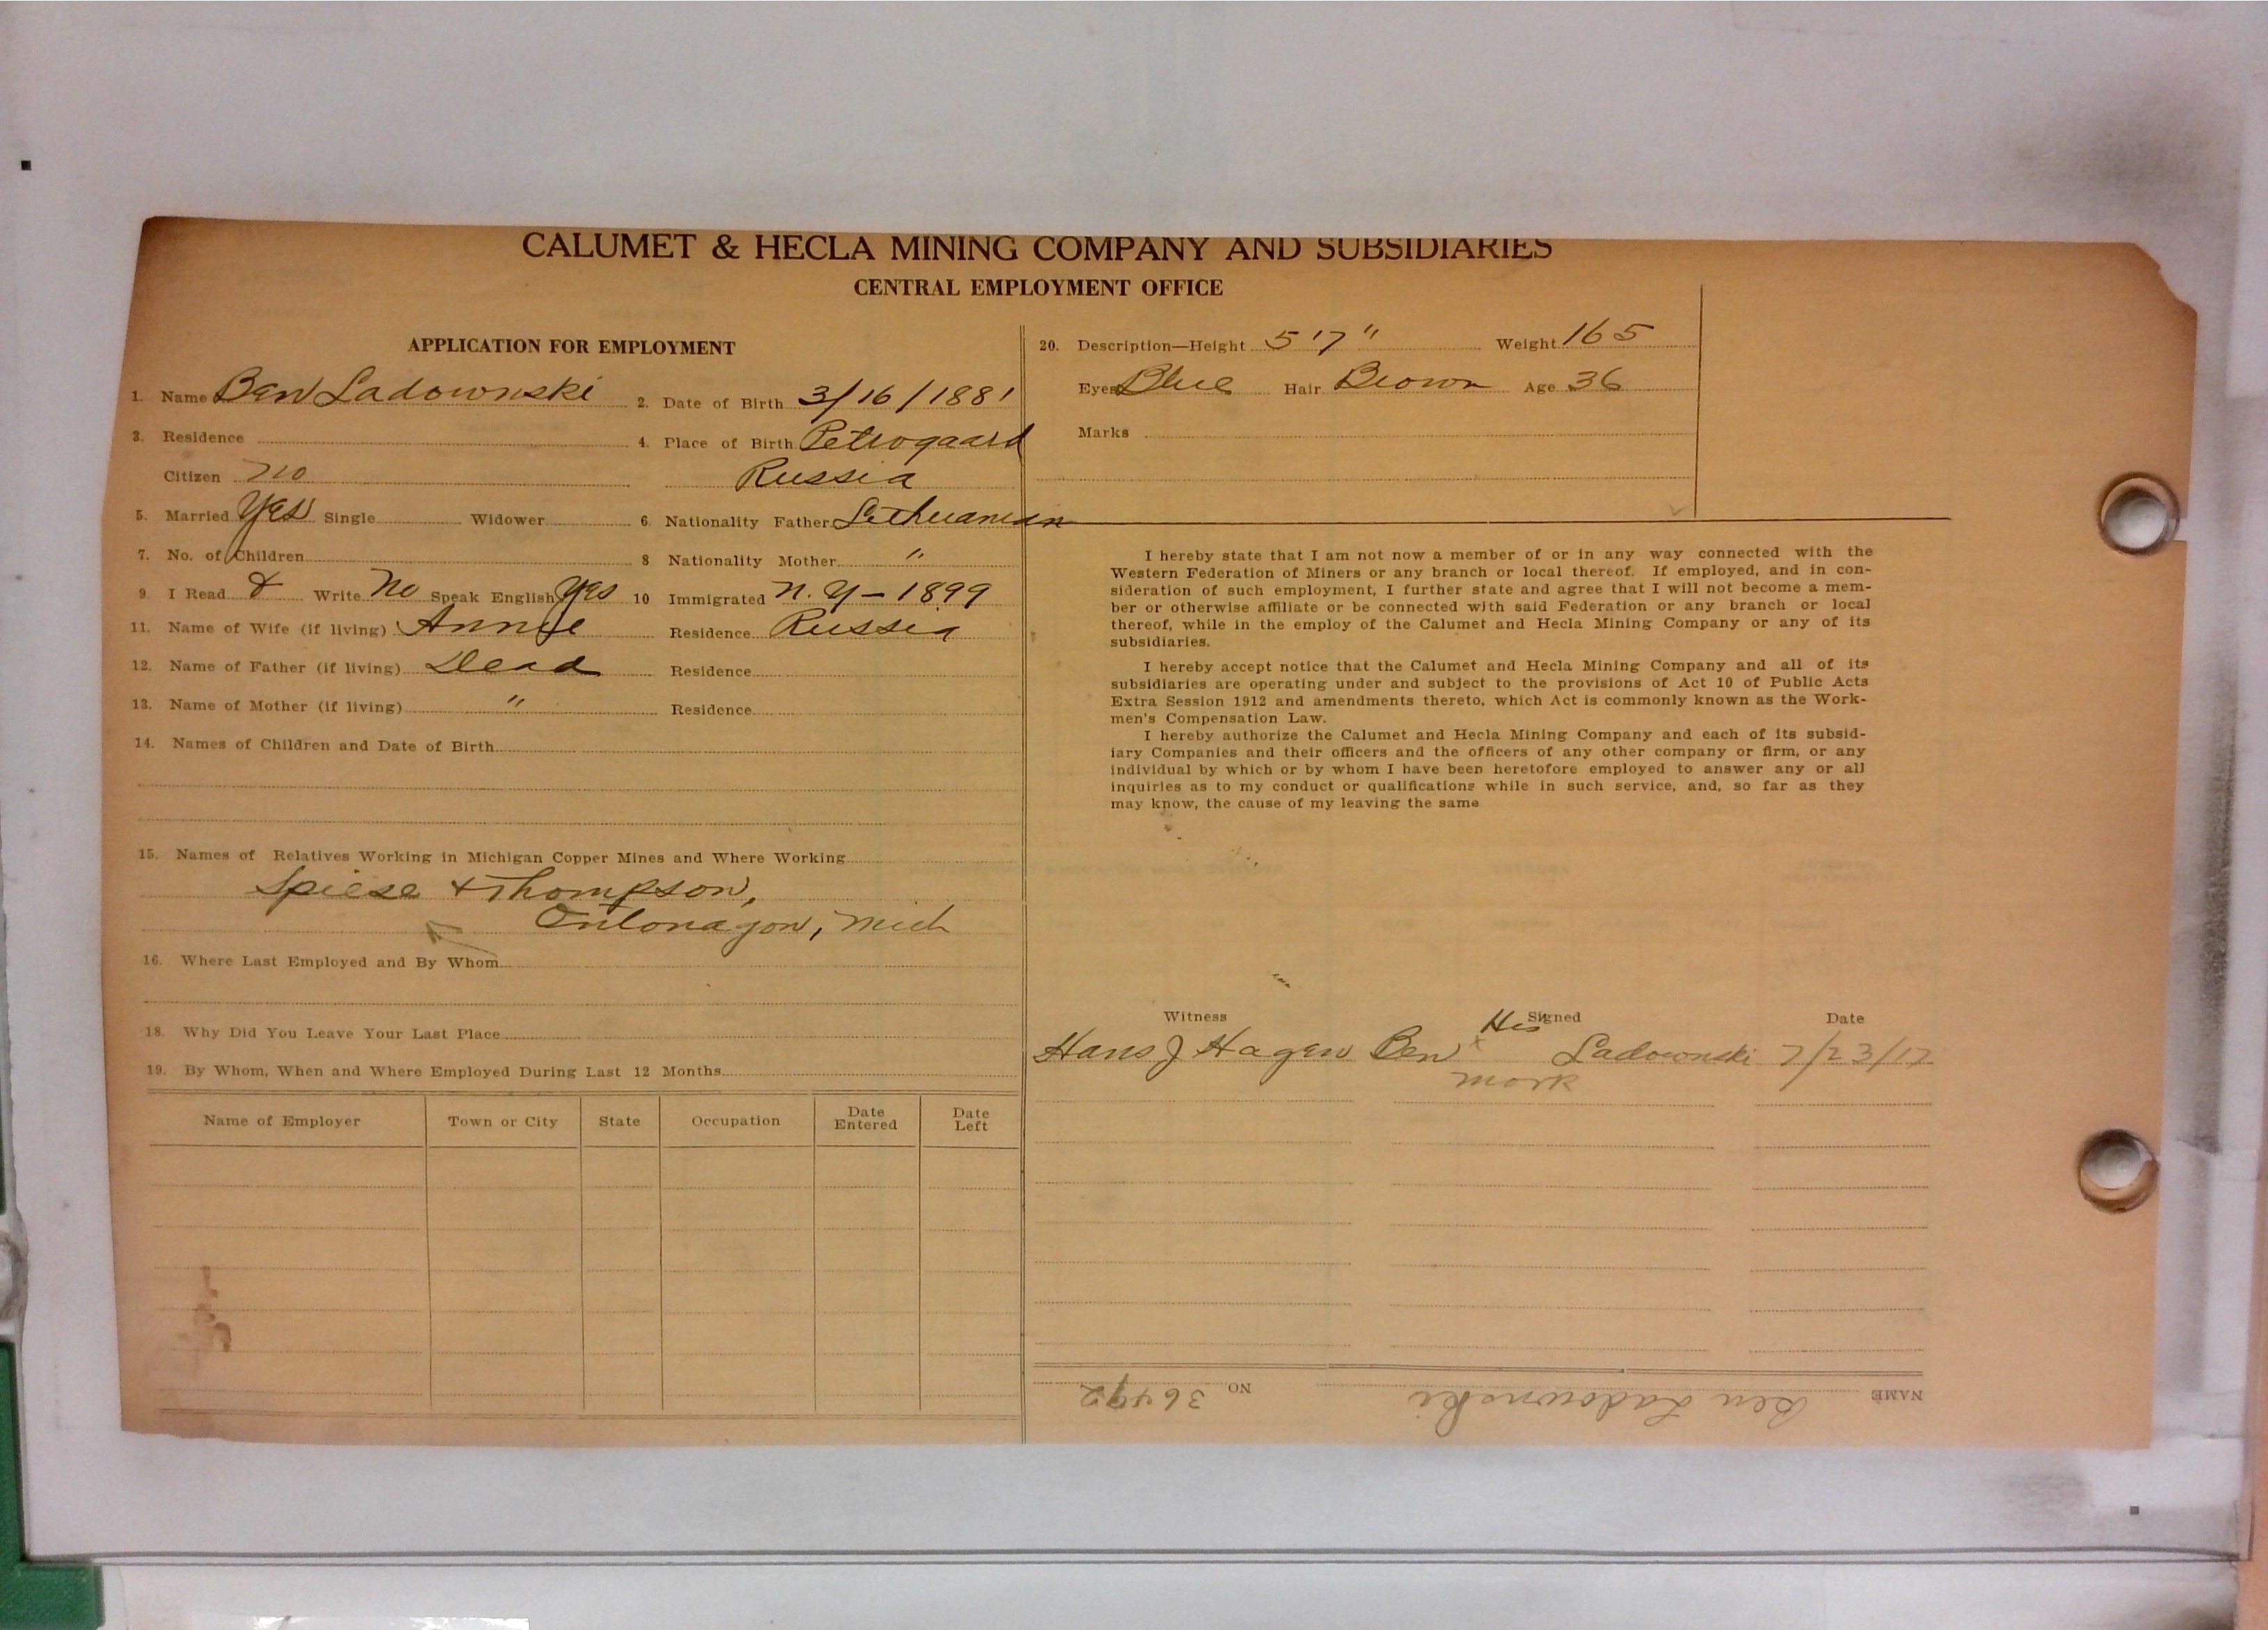 CALUMET & HECLA MINING COMPANY AND SUBSIDIARIES
CENTRAL EMPLOYMENT OFFICE
APPLICATION FOR EMPLOYMENT
1. Name Ben Ladownski 2. Date of Birth 3/16/1881
3. Residence 4. Place of Birth Petrogaard
Citizen no Russia
5. Married Yes Single Widower 6. Nationality Father Lithuanian
7. No. of Children 8 Nationality Mother "
9. I Read & Write No Speak English Yes 10 Immigrated N.Y - 1899
11. Name of Wife (if living) Annie Residence Russia
12. Name of Father (if living) Dead Residence
13. Name of Mother (if living) " Residence
14. Names of Children and Date of Birth
15. Names of Relatives Working in Michigan Copper Mines and Where Working
Spiese & Thompson,
Ontonagon, Mich
16. Where Last Employed and By Whom
18. Why Did You Leave Your Last Place
19. By Whom, When and Where Employed During Last 12 Months
Name of Employer Town or City State Occupation Date Entered Date Left
20. Description—Height 5'7" Weight 165
Eyes Blue Hair Brown Age 36
Marks
I hereby state that I am not now a member of or in any way connected with the
Western Federation of Miners or any branch or local thereof. If employed, and in con-
sideration of such employment, I further state and agree that I will not become a mem-
ber or otherwise affiliate or be connected with said Federation or any branch or local
thereof, while in the employ of the Calumet and Hecla Mining Company or any of its
subsidiaries.
I hereby accept notice that the Calumet and Hecla Mining Company and all of its
subsidiaries are operating under and subject to the provisions of Act 10 of Public Acts
Extra Session 1912 and amendments thereto, which Act is commonly known as the Work-
men's Compensation Law.
I hereby authorize the Calumet and Hecla Mining Company and each of its subsid-
iary Companies and their officers and the officers of any other company or firm, or any
individual by which or by whom I have been heretofore employed to answer any or all
inquiries as to my conduct or qualifications while in such service, and, so far as they
may know, the cause of my leaving the same
Witness Signed Date
His
Hans J Hagen Ben x Ladownski 7/23/17
mark
NAME Ben Ladownski NO